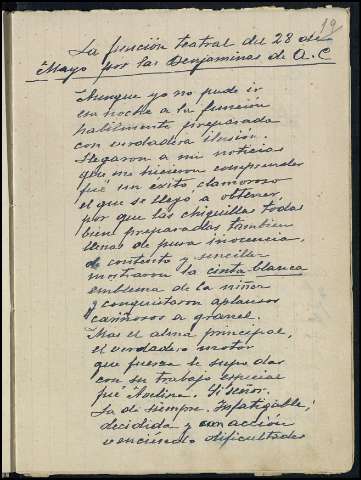 19
La función teatral del 28 de
Mayo por las Benjaminas de A.C
Aunque yo no pude ir
esa noche a la función
habilmente preparada
con verdadera ilusión.
Llegaron a mi noticias
que me hicieron comprender
fué un éxito clamoroso
el que se llegó a obtener,
por que las chiquillas todas
bien preparadas tambien
llenas de pura inocencia,
de contento y sencillez
mostraron la cinta blanca
emblema de la niñez
y conquistaron aplausos
cariñosos a granel.
Mas el alma principal,
el verdadero motor
que fuerza le supo dar
con su trabajo especial
fué Avelina. Si señor.
La de siempre. Infatigable;
decidida y con acción
venciendo dificultades